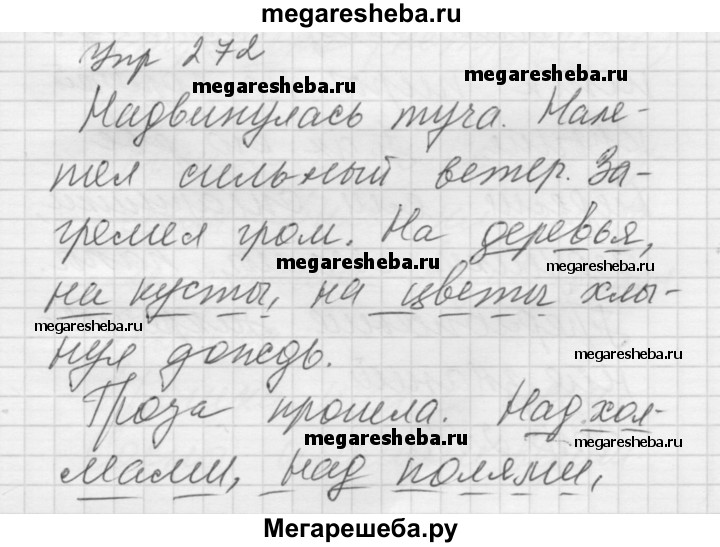 megaresheba.ru
Упр 272
megaresheba.ru
megaresheba.ru
Надвинулась туча. Нале-
тел сильный ветер. За-
гремел гром. На деревья,
megaresheba.ru
megaresheba.ru
на кусты, на цветы хлы-
megaresheba.ru
нул дождь.
megaresheba.ru
Гроза прошла. Над хол-
megaresheba.ru
megaresheba.ru
мами, над полями,
Мегарешеба.ру